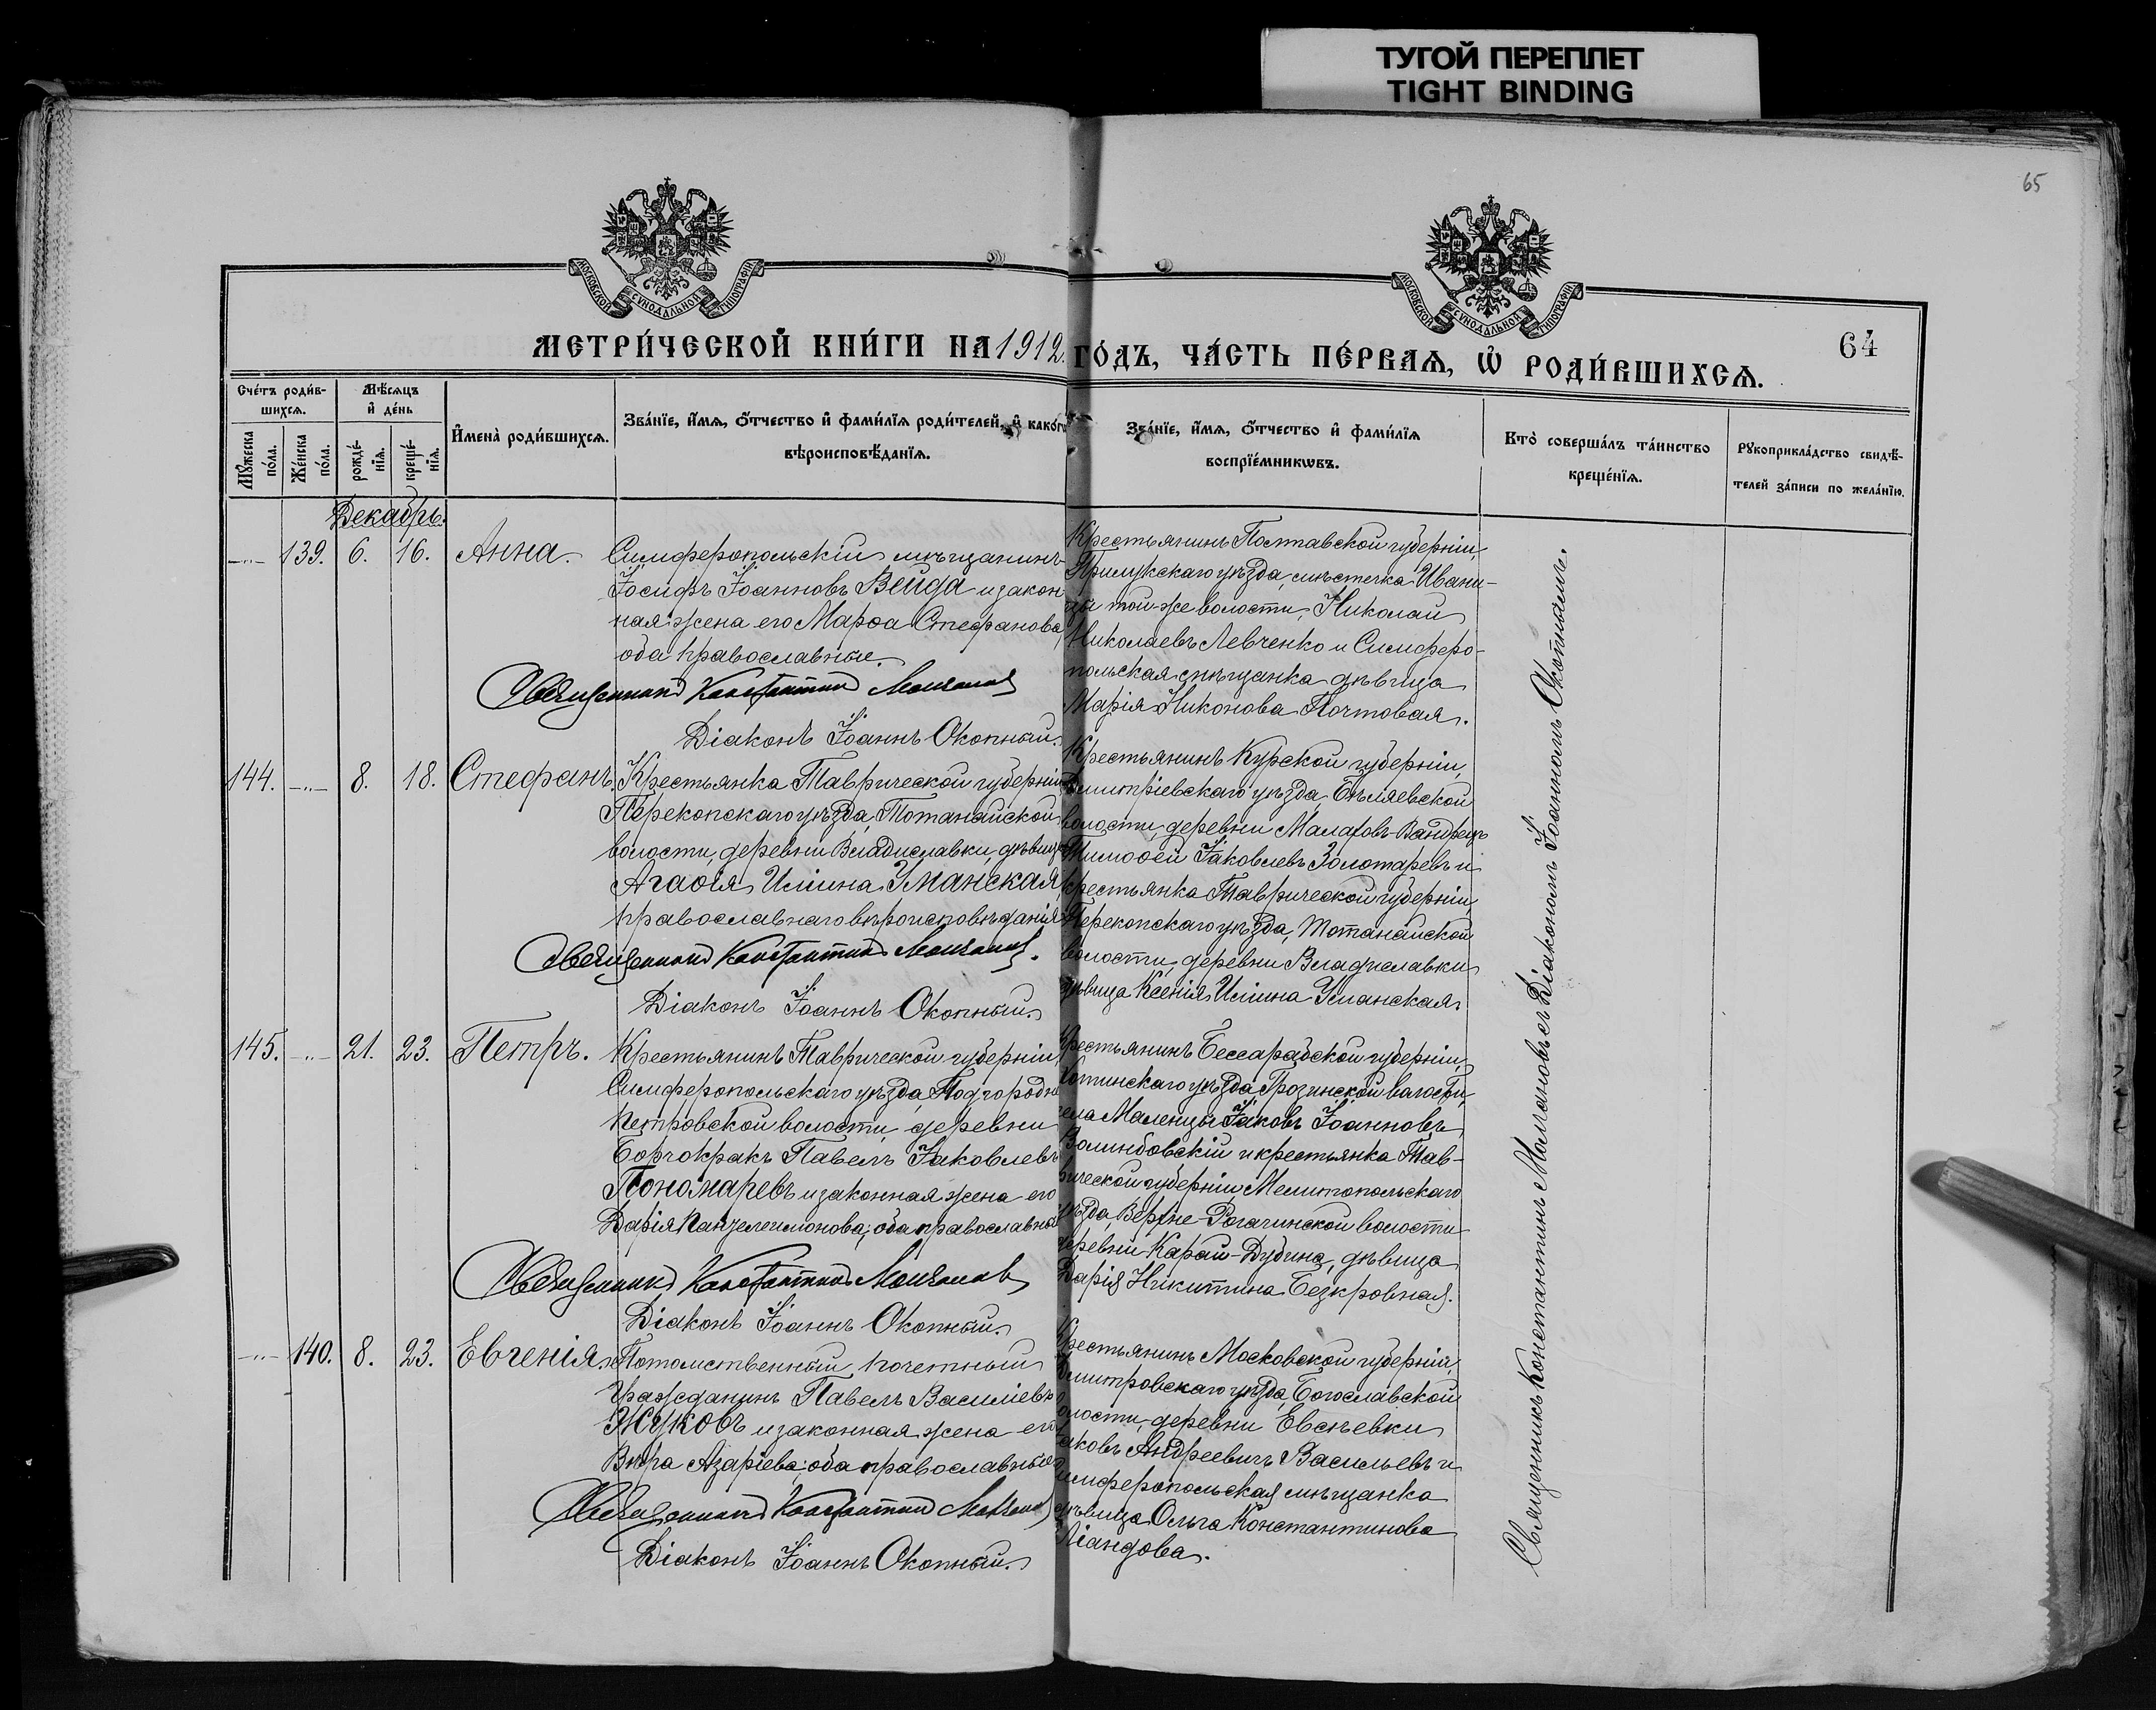 ТУГОЙ ПЕРЕПЛЕТ
TIGHT BINDING
65
МОСКОВСКОЙ СУНОДАЛЬНОЙ ТИПОГРАФІИ
МОСКОВСКОЙ СУНОДАЛЬНОЙ ТИПОГРАФІИ
64
МЕТРИ́ЧЕСКОЙ КНИ́ГИ НА 1912 ГО́ДЪ, ЧА́СТЬ ПЕ́РВАѦ, Ѡ҆ РОДИ́ВШИХСѦ.
Сче́тъ роди́в-
шихсѧ.
Мꙋ́жеска
по́ла.
Же́нска
по́ла.
Мѣ́сѧцъ
и҆ де́нь
рожде́-
нїѧ.
креще́-
нїѧ.
И҆мена̀ роди́вшихсѧ.
Зва́нїе, и҆́мѧ, ѻ҆́тчество и҆ фами́лїѧ роди́телей, и҆ како́гѡ
вѣроисповѣ́данїѧ.
Зва́нїе, и҆́мѧ, ѻ҆́тчество и҆ фами́лїѧ
воспрїе́мникѡвъ.
Кто̀ соверша́лъ та́инство
креще́нїѧ.
Рꙋкоприкла́дство свидѣ́-
телей за́писи по жела́нїю.
Декабрь.
-"- 139. 6. 16. Анна.
Симферопольскій мѣщанинъ
Іосифъ Іоанновъ Вейда и закон-
ная жена его Марѳа Стефанова,
оба православные.
Священникъ Константинъ Молчановъ
Діаконъ Іоаннъ Окопный.
Крестьянинъ Полтавской губерніи,
Прилукскаго уѣзда, мѣстечка Ивани-
цы той-же волости, Николай
Николаевъ Левченко и Симферо-
польская мѣщанка дѣвица
Марія Никонова Почтовая.
144. -"- 8. 18. Стефанъ.
Крестьянка Таврической губерніи,
Перекопскаго уѣзда, Тотанайской
волости, деревни Владиславки, дѣвица
Агаѳія Иліина Уманская,
православнаго вѣроисповѣданія.
Священникъ Константинъ Молчановъ.
Діаконъ Іоаннъ Окопный.
Крестьянинъ Курской губерніи,
Дмитріевскаго уѣзда, Бѣляевской
волости, деревни
Тимоѳей Іаковлевъ Золотаревъ и
крестьянка Таврической губерніи,
Перекопскаго уѣзда, Тотанайской
волости, деревни Владиславки
дѣвица Ксенія Иліина Уманская.
145. -"- 21. 23. Петръ.
Крестьянинъ Таврической губерніи,
Симферопольскаго уѣзда, Подгородне-
Петровской волости, деревни
Борчокракъ Павелъ Іаковлевъ
Пономаревъ и законная жена его
Дарія Пантелеимонова, оба православные
Священникъ Константинъ Молчановъ
Діаконъ Іоаннъ Окопный.
Крестьянинъ Бессарабской губерніи,
Хотинскаго уѣзда, Грозинской волости,
села Маленцы Іаковъ Іоанновъ
и крестьянка Тав-
рической губерніи Мелитопольскаго
уѣзда Верхне-Рогачинской волости
деревни Карай-Дубина, дѣвица
Дарія Никитина Безкровная.
-"- 140. 8. 23. Евгенія.
Потомственный почетный
гражданинъ Павелъ Василіевъ
Жуковъ и законная жена его
Вѣра Азаріева, оба православные
Священникъ Константинъ Молчановъ
Діаконъ Іоаннъ Окопный.
Крестьянинъ Московской губерніи,
Дмитровскаго уѣзда, Богословской
волости, деревни Евсѣевки
Іаковъ Андреевичъ Васильевъ и
Симферопольская мѣщанка
дѣвица Ольга Константинова
Ліандова.
Священникъ Константинъ Молчановъ съ Діакономъ Іоанномъ Окопнымъ.